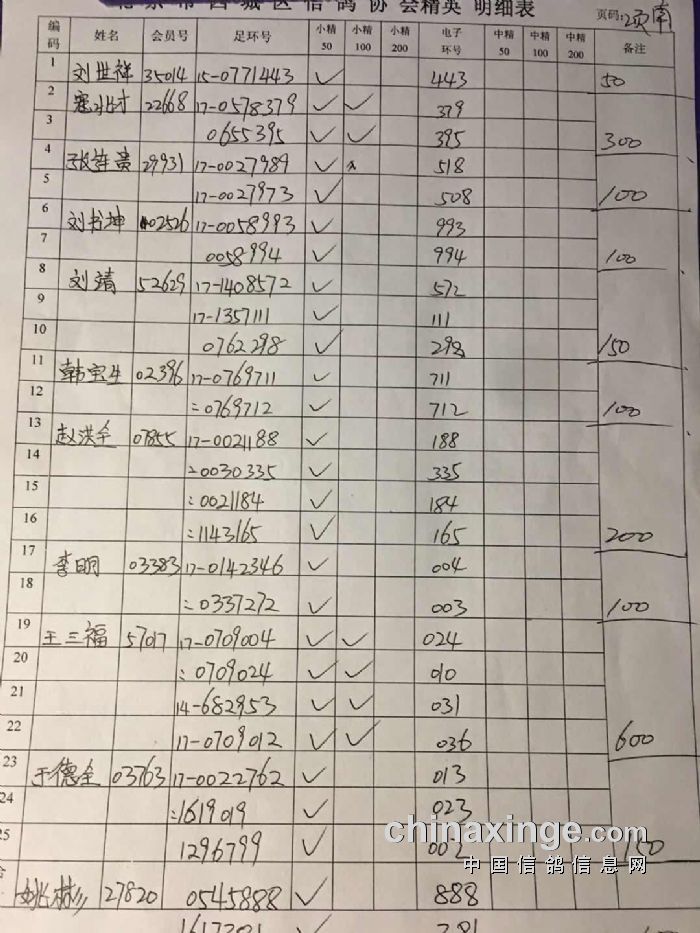 北京市西城区信鸽协会精英 明细表
页码:
编码 姓名 会员号 足环号 小精50 小精100 小精200 电子环号 中精50 中精100 中精200 备注
1 刘世祥 35014 15-0771443 ✓ 443 50
2 22668 17-0578379 ✓ ✓ 379
3 0655395 ✓ ✓ 395 300
4 29931 17-0027989 ✓ 518
5 17-0027973 ✓ 508 100
6 刘书坤 02526 17-0058993 ✓ 993
7 0058994 ✓ 994 100
8 刘靖 52629 17-1408572 ✓ 572
9 17-1357111 ✓ 111
10 0762298 ✓ 298 150
11 韩宝生 02396 17-0769711 ✓ 711
12 :0769712 ✓ 712 100
13 赵洪全 07855 17-0021188 ✓ 188
14 :0030335 ✓ 335
15 :0021184 ✓ 184
16 :1143165 ✓ 165 200
17 李明 03383 17-0142346 ✓ 004
18 :0337272 ✓ 003 100
19 王三福 57017 17-0709004 ✓ ✓ 024
20 :0709024 ✓ ✓ 010
21 14-682953 ✓ ✓ 031
22 17-0709012 ✓ ✓ 036 600
23 于德全 03763 17-0022762 ✓ 013
24 :1619019 ✓ 023
25 1296799 ✓ 002 150
chinaxinge.com
中国信鸽信息网
27820 0545888 ✓ 888